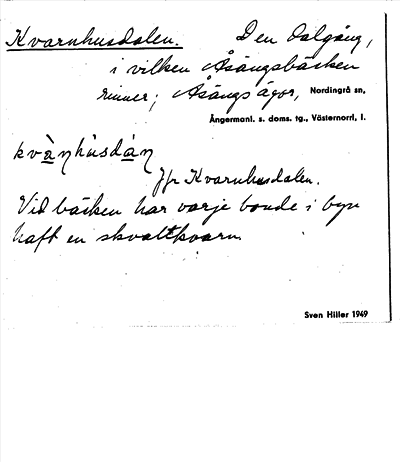 Kvarnhusdalen. Den dalgång,
i vilken Åsångsbäcken
rinner; Åsångs ägor, Nordingrå sn,
Ångermanl. s. doms. tg., Västernorrl, l.
kvà̱ṇhùsdá̱ṇ
Jfr Kvarnhusdalen.
Vid bäcken har varje bonde i byn
haft en skvaltkvarn.
Sven Hiller 1949